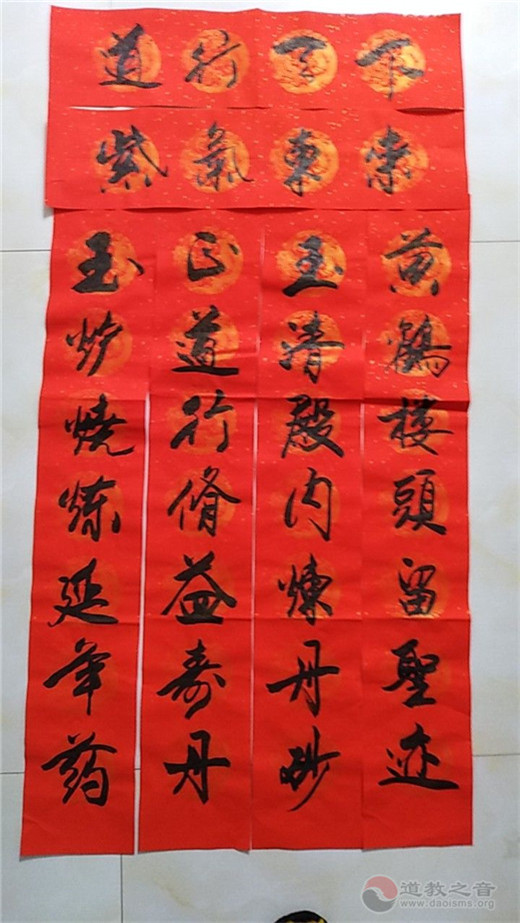 道行天下
紫氣東来
黄鶴楼頭留聖迹
玉清殿内煉丹砂
正道行脩益寿丹
玉炉燒炼延年药
道教之音
www.daoisms.org